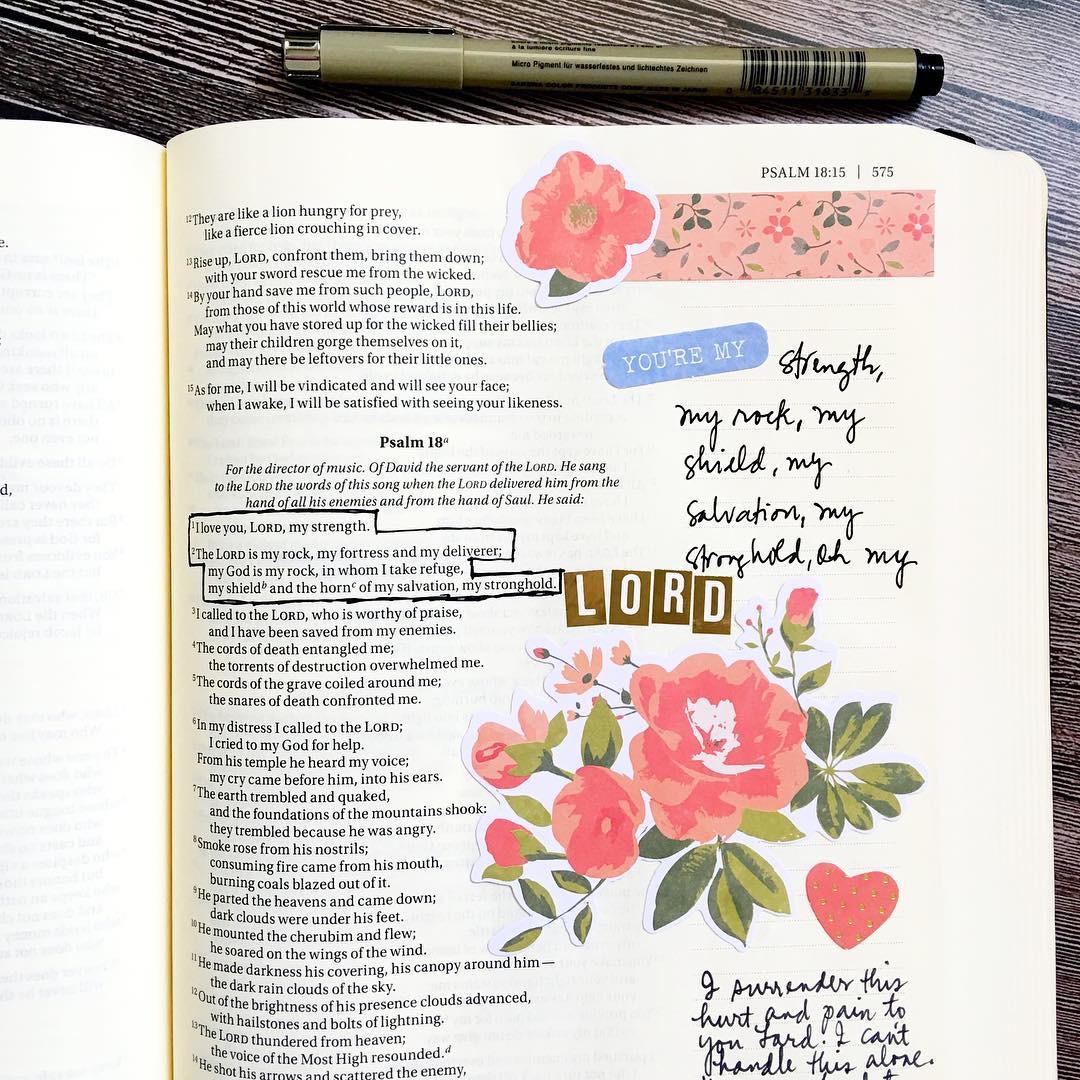 à la lumière écriture fine
Micro Pigment für wasserfestes und lichtechtes Zeichnen
SAKURA COLOR PRODUCTS CORP. MADE IN JAPAN
0 84511 31833 5
PSALM 18:15 | 575
e.
d,
12 They are like a lion hungry for prey,
like a fierce lion crouching in cover.
13 Rise up, LORD, confront them, bring them down;
with your sword rescue me from the wicked.
14 By your hand save me from such people, LORD,
from those of this world whose reward is in this life.
May what you have stored up for the wicked fill their bellies;
may their children gorge themselves on it,
and may there be leftovers for their little ones.
15 As for me, I will be vindicated and will see your face;
when I awake, I will be satisfied with seeing your likeness.
Psalm 18a
For the director of music. Of David the servant of the LORD. He sang
to the LORD the words of this song when the LORD delivered him from the
hand of all his enemies and from the hand of Saul. He said:
1 I love you, LORD, my strength.
2 The LORD is my rock, my fortress and my deliverer;
my God is my rock, in whom I take refuge,
my shieldb and the hornc of my salvation, my stronghold.
3 I called to the LORD, who is worthy of praise,
and I have been saved from my enemies.
4 The cords of death entangled me;
the torrents of destruction overwhelmed me.
5 The cords of the grave coiled around me;
the snares of death confronted me.
6 In my distress I called to the LORD;
I cried to my God for help.
From his temple he heard my voice;
my cry came before him, into his ears.
7 The earth trembled and quaked,
and the foundations of the mountains shook;
they trembled because he was angry.
8 Smoke rose from his nostrils;
consuming fire came from his mouth,
burning coals blazed out of it.
9 He parted the heavens and came down;
dark clouds were under his feet.
10 He mounted the cherubim and flew;
he soared on the wings of the wind.
11 He made darkness his covering, his canopy around him—
the dark rain clouds of the sky.
12 Out of the brightness of his presence clouds advanced,
with hailstones and bolts of lightning.
13 The LORD thundered from heaven;
the voice of the Most High resounded.d
14 He shot his arrows and scattered the enemy,
YOU'RE MY strength,
my rock, my
shield, my
salvation, my
stronghold, oh my
LORD
I surrender this
hurt and pain to
you Lord! I can't
handle this alone.